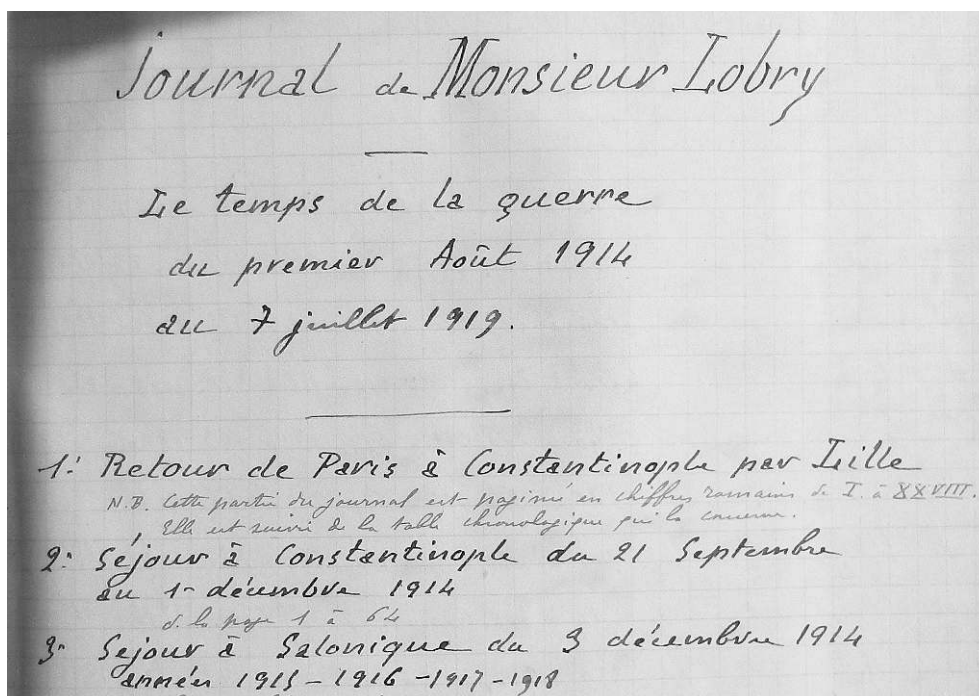 Journal de Monsieur Lobry
Le temps de la guerre
du premier Août 1914
au 7 juillet 1919.
1: Retour de Paris à Constantinople par Lille
N.B. Cette partie du journal est paginée en chiffres romains de I. à XXVIII.
Elle est suivie de la table chronologique qui la concerne.
2: Séjour à Constantinople du 21 Septembre
au 1- décembre 1914
de la page 1 à 64
3- Séjour à Salonique du 3 décembre 1914
années 1915 - 1916 - 1917 - 1918